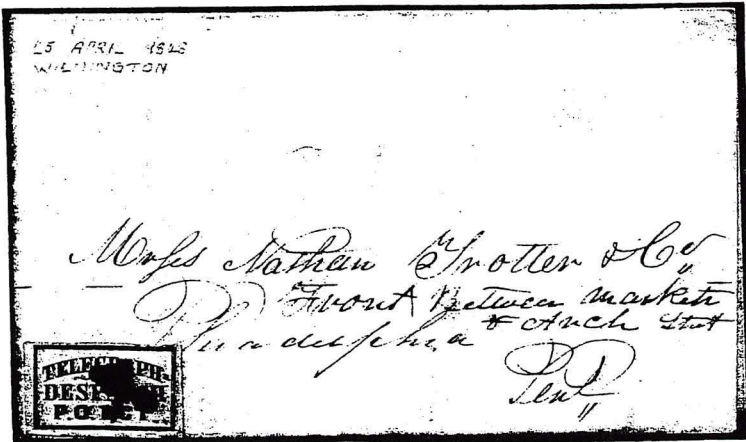 25 APRIL 1848
WILMINGTON
Messrs Nathan Trotter & Co
Front Between market
& Arch Street
Philadelphia
Pena
TELEGRAPH
DESPATCH
P.O.